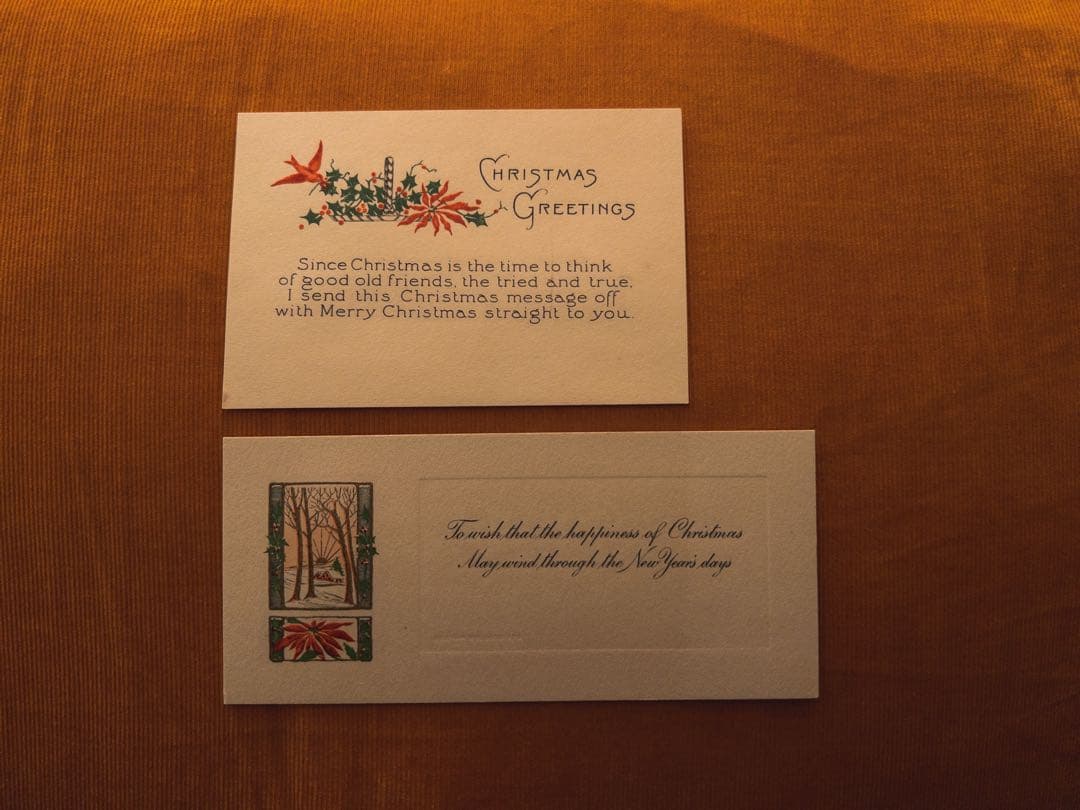 Christmas
Greetings
Since Christmas is the time to think
of good old friends, the tried and true,
I send this Christmas message off
with Merry Christmas straight to you.
To wish that the happiness of Christmas
May wind through the New Year's days